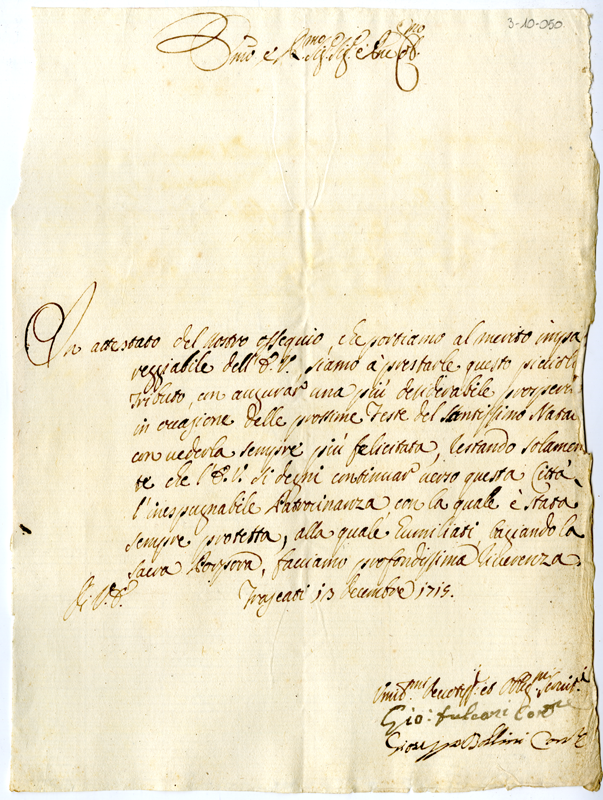 3-10-050
Em̃o e Rmo Sig. Sig. e Pne Colmo
In attestato del nostro ossequio, che portiamo al merito impa
reggiabile dell'E.V. siamo à prestarle questo picciol
Tributo, con augurarle una più desiderabile prosperi
in occasione delle prossime Feste del Santissimo Natal
con vederla sempre più felicitata, restando solamen
te che l'E.V. si degni continuar verso questa Città
l'inespugnabile Patrocinanza, con la quale è stata
sempre protetta, alla quale humiliati, baciando la
sacra Porpora, facciamo profondissima Riverenza.
Di V.E. Frascati 13 Decembre 1715.
Umilmi Devotssi et Obblmi servit.i
Gio: Fulconi Conre
Giuseppe Bollini Conre